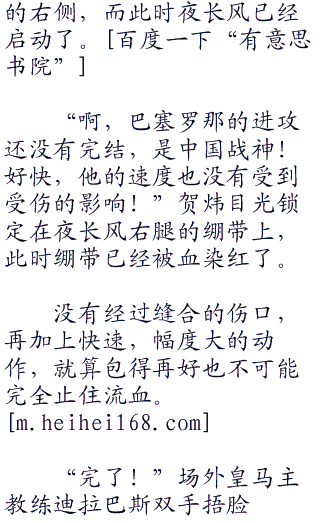 的右侧，而此时夜长风已经
启动了。[百度一下“有意思
书院”]
“啊，巴塞罗那的进攻
还没有完结，是中国战神！
好快，他的速度也没有受到
受伤的影响！”贺炜目光锁
定在夜长风右腿的绷带上，
此时绷带已经被血染红了。
没有经过缝合的伤口，
再加上快速，幅度大的动
作，就算包得再好也不可能
完全止住流血。
[m.heihei168.com]
“完了！”场外皇马主
教练迪拉巴斯双手捂脸